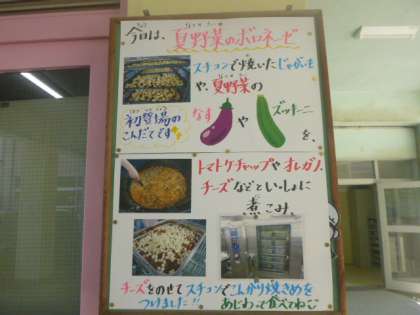 今日は、夏野菜のボロネーゼ
スチコンで焼いたじゃがいも
や、夏野菜の
初登場の
こんだてです
なす
や
ズッキーニ
を、
トマトケチャップやオレガノ、
チーズなどといっしょに
煮こみ、
チーズをのせてスチコンでこんがり焼きめを
つけました!!
あじわって食べてね